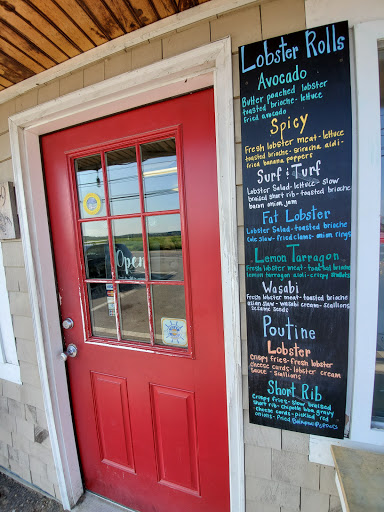 Lobster Rolls
Avocado
Butter poached lobster
toasted brioche - lettuce
fried avocado
Spicy
Fresh lobster meat - lettuce
toasted brioche - sriracha aidi -
fried banana peppers
Surf & Turf
Lobster Salad - lettuce - slow
braised short rib - toasted brioche
bacon onion jam
Fat Lobster
Lobster Salad - toasted brioche
Cole slaw - fried clams - onion rings
Lemon Tarragon
Fresh lobster meat - toasted brioche
lemon tarragon aidi - crispy shallots
Wasabi
Fresh lobster meat - toasted brioche
asian slaw - wasabi cream - scallions
sesame seeds
Poutine
Lobster
Crispy fries - fresh lobster
cheese cards - lobster cream
sauce - scallions
Short Rib
Crispy fries - slow braised
short rib - chipotle bbq gravy
cheese cards - pickled red
onions - Fried Banana Peppers
Open